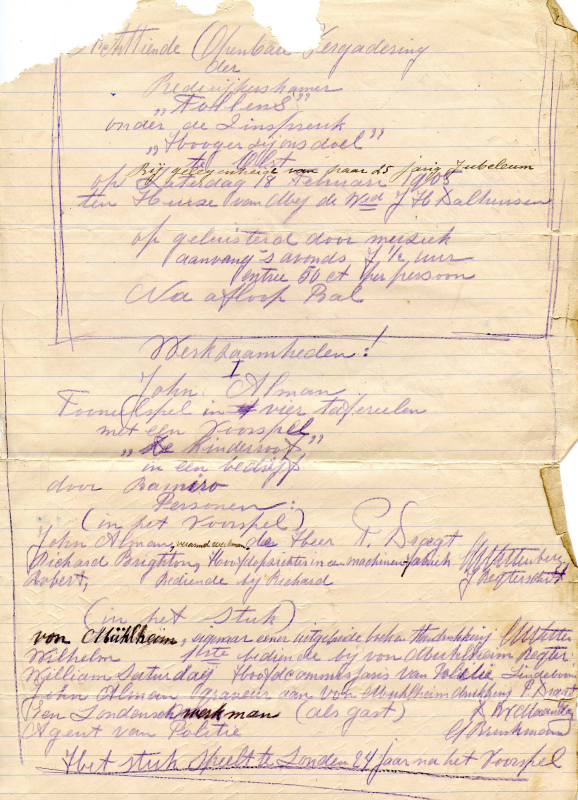 Achttiende Openbare Vergadering
der
Rederijkerskamer
„Tollens"
onder de Zinspreuk
„Hooger zij ons doel"
te Olst
Bij gelegenheid van haar 25 jarig Jubeleum
op Zaterdag 18 Februari 1905
ten Huize van dbij de Wed J H Dalhuisen
op geluisterd door muziek
aanvang 's avonds 7 1/2 uur
entree 50 ct per persoon
Na afloop Bal
Werkzaamheden:
I
John Alman
Tooneelspel in vier tafereelen
met een Voorspel
„De Kinderroof"
in een bedrijf
door Ramiro
Personen:
(in het Voorspel)
John Alman, verarmd werkman, de Heer P. Draegt
Richard Brighton, Hoofdopzichter in een machinen fabriek
Robert, Bediende bij Richard
(in het stuk)
von Mühlheim, eigenaar eener uitgebreide boeken
Wilhelm eerste bediende bij von Muhlheim Regter
William Saturday Hoofdcommissaris van Politie Lindeboom
John Alman Graveur aan von Muhlheim drukkerij P. Draegt
Een Londensch werkman (als gast)
Agent van Politie G Brinkman
Het stuk speelt te Londen 24 jaar na het Voorspel